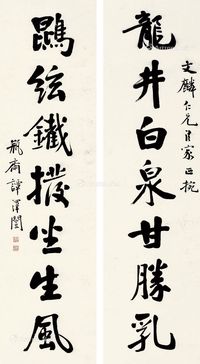 龍井白泉甘勝乳
文麟仁兄方家正捥
鵾絃鐵撥坐生風
瓶齋譚澤闓